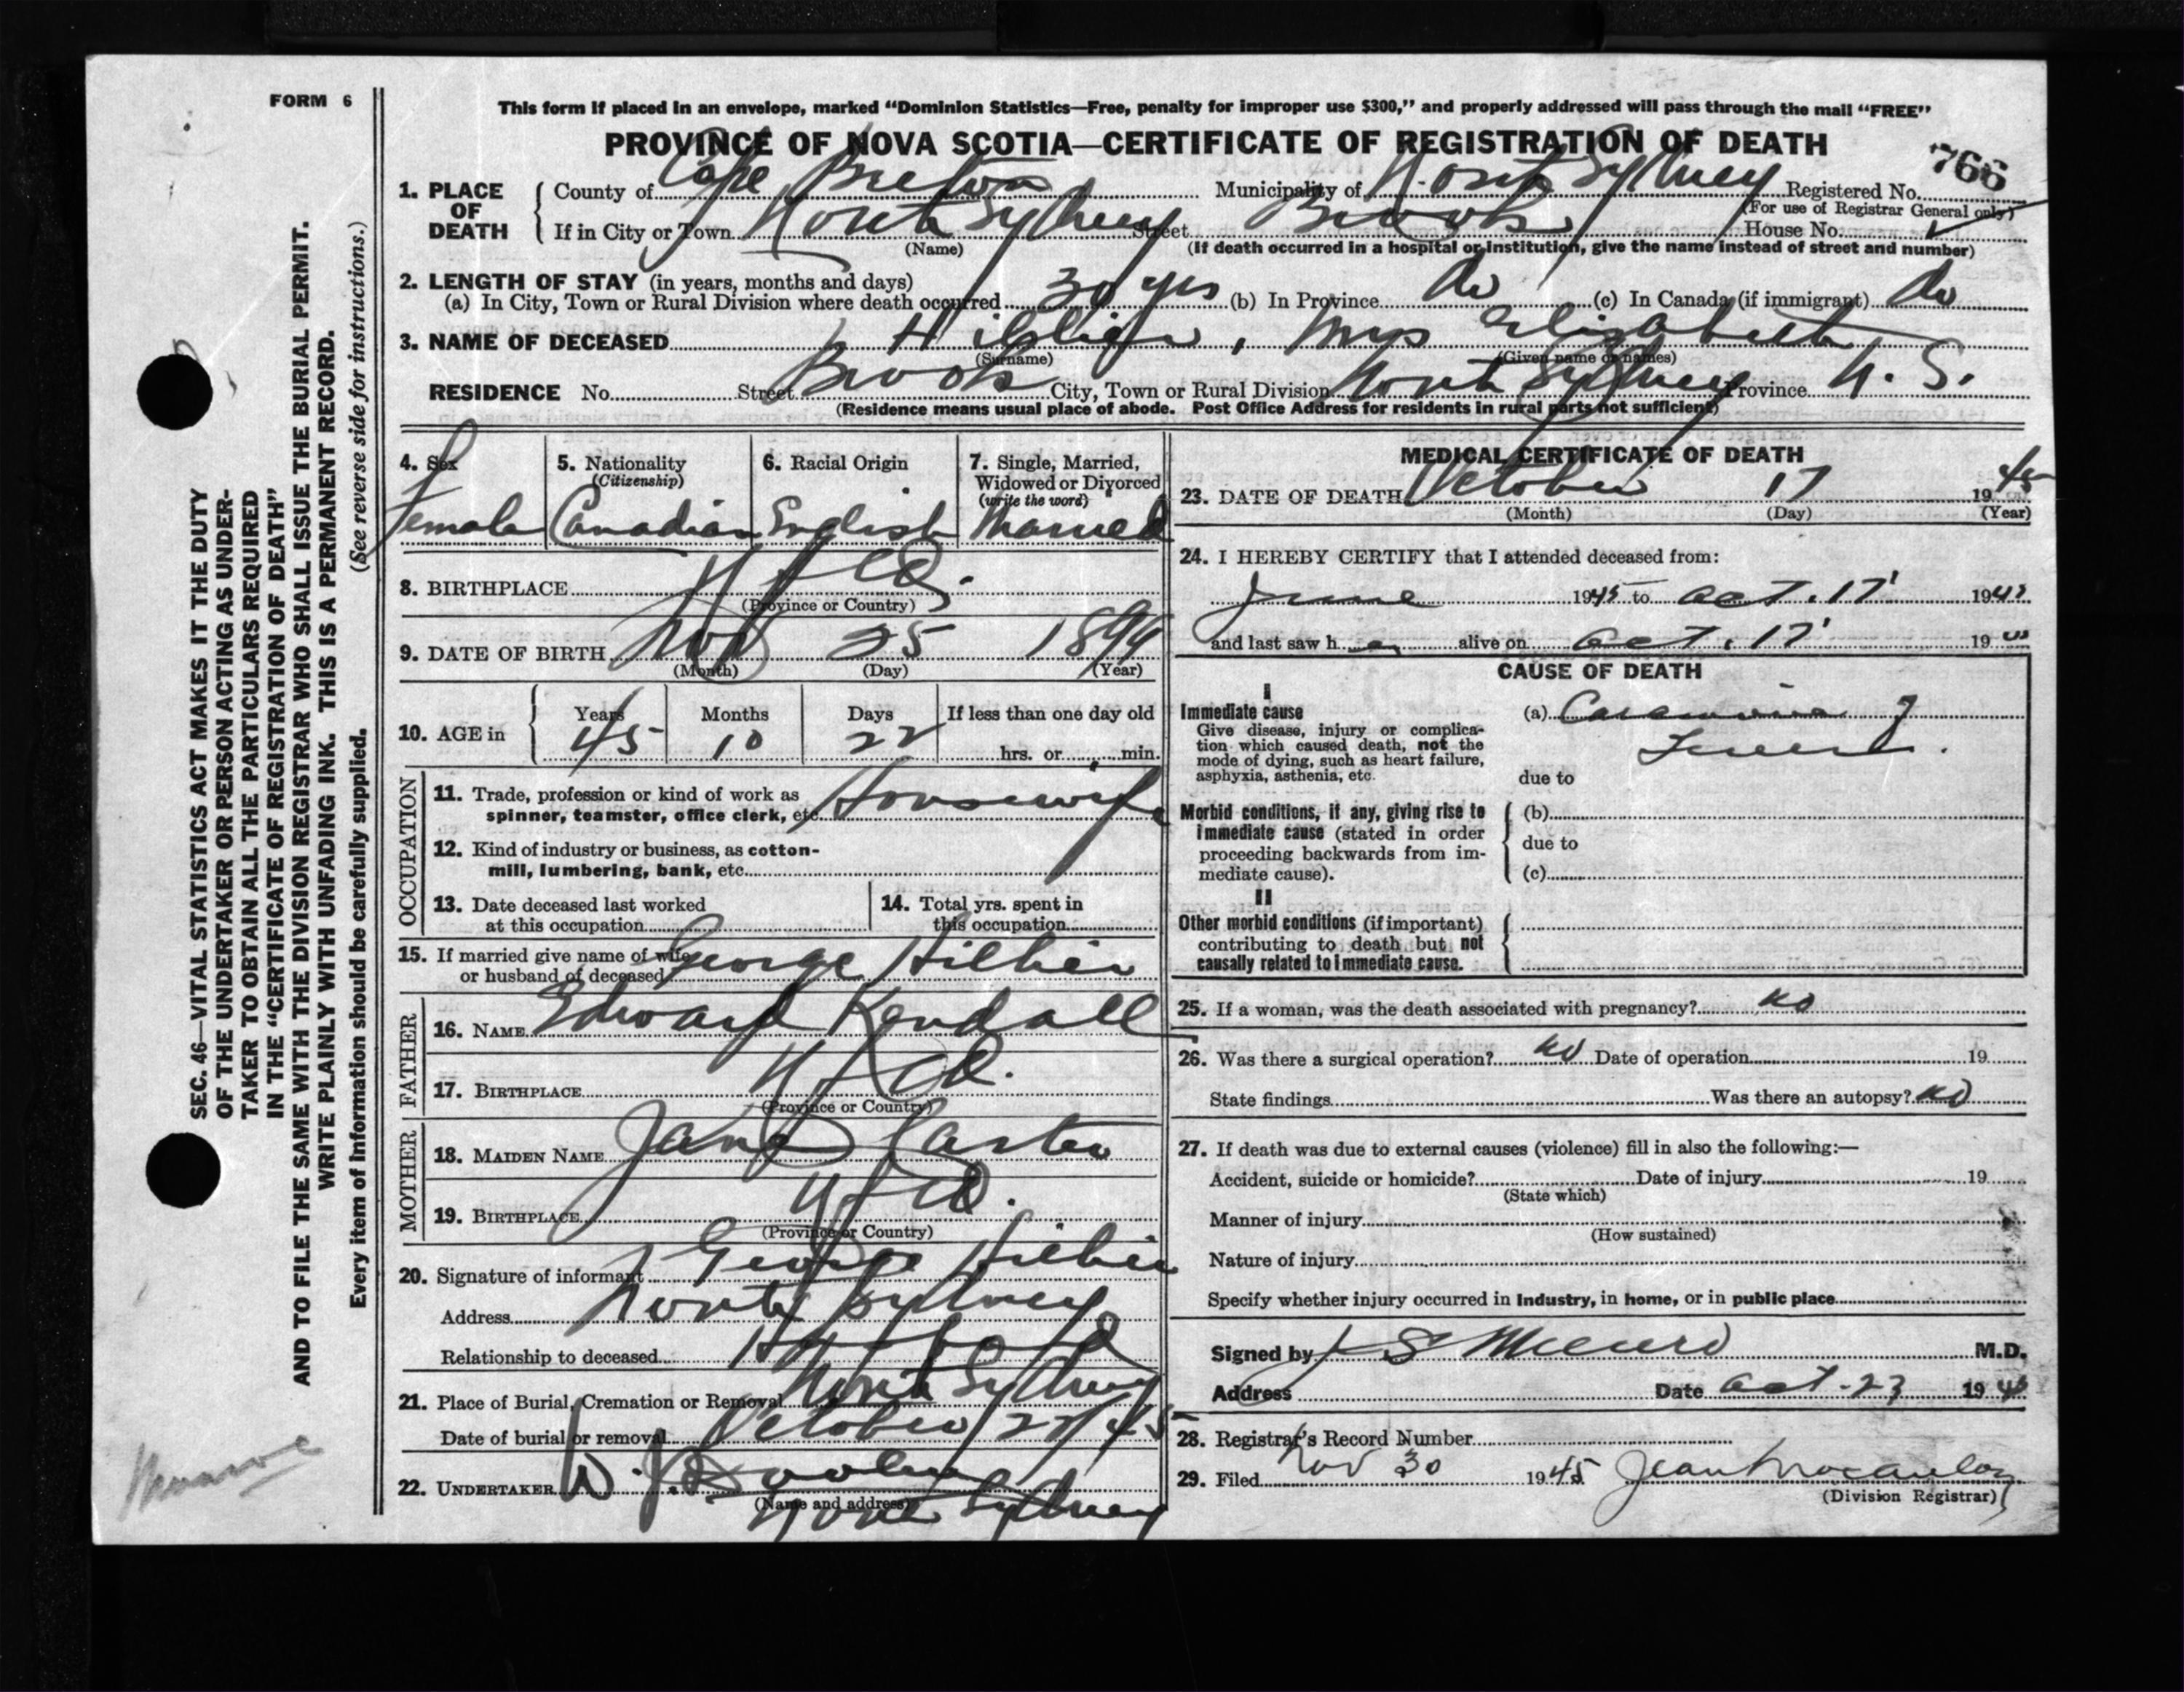 FORM 6
This form if placed in an envelope, marked “Dominion Statistics—Free, penalty for improper use $300,” and properly addressed will pass through the mail “FREE”
PROVINCE OF NOVA SCOTIA—CERTIFICATE OF REGISTRATION OF DEATH
766
1. PLACE OF DEATH
County of Cape Breton Municipality of North Sydney Registered No.
(For use of Registrar General only)
If in City or Town North Sydney Street Brook House No.
(Name) (If death occurred in a hospital or institution, give the name instead of street and number)
2. LENGTH OF STAY (in years, months and days)
(a) In City, Town or Rural Division where death occurred 30 yrs (b) In Province do (c) In Canada (if immigrant) do
3. NAME OF DECEASED , Mrs Elizabeth
(Surname) (Given name or names)
RESIDENCE No. Street Brook City, Town or Rural Division North Sydney Province N. S.
(Residence means usual place of abode. Post Office Address for residents in rural parts not sufficient)
4. Sex
Female
5. Nationality
(Citizenship)
Canadian
6. Racial Origin
English
7. Single, Married,
Widowed or Divorced
(write the word)
Married
8. BIRTHPLACE Nfld.
(Province or Country)
9. DATE OF BIRTH Nov 25 1899
(Month) (Day) (Year)
10. AGE in
Years Months Days If less than one day old
45 10 22 hrs. or min.
OCCUPATION
11. Trade, profession or kind of work as
spinner, teamster, office clerk, etc. Housewife
12. Kind of industry or business, as cotton-
mill, lumbering, bank, etc.
13. Date deceased last worked
at this occupation
14. Total yrs. spent in
this occupation
15. If married give name of wife
or husband of deceased George
FATHER
16. NAME Edward Kendall
17. BIRTHPLACE Nfld.
(Province or Country)
MOTHER
18. MAIDEN NAME Jane
19. BIRTHPLACE Nfld.
(Province or Country)
20. Signature of informant George
Address North Sydney
Relationship to deceased Husband
21. Place of Burial, Cremation or Removal North Sydney
Date of burial or removal October 45
22. UNDERTAKER W. J. Dooley
(Name and address)
North Sydney
MEDICAL CERTIFICATE OF DEATH
23. DATE OF DEATH October 17 1945
(Month) (Day) (Year)
24. I HEREBY CERTIFY that I attended deceased from:
June 1945 to Oct. 17 1945
and last saw h alive on Oct. 17 19
CAUSE OF DEATH
I
Immediate cause
Give disease, injury or complica-
tion which caused death, not the
mode of dying, such as heart failure,
asphyxia, asthenia, etc.
(a) Carcinoma of
due to
Morbid conditions, if any, giving rise to
immediate cause (stated in order
proceeding backwards from im-
mediate cause).
(b)
due to
(c)
II
Other morbid conditions (if important)
contributing to death but not
causally related to immediate cause.
25. If a woman, was the death associated with pregnancy? no
26. Was there a surgical operation? no Date of operation 19
State findings Was there an autopsy? no
27. If death was due to external causes (violence) fill in also the following:—
Accident, suicide or homicide? Date of injury 19
(State which)
Manner of injury
(How sustained)
Nature of injury
Specify whether injury occurred in Industry, in home, or in public place
Signed by M.D.
Address Date Oct. 23 1945
28. Registrar's Record Number
29. Filed Nov 30 1945 Jean
(Division Registrar)
SEC. 46—VITAL STATISTICS ACT MAKES IT THE DUTY
OF THE UNDERTAKER OR PERSON ACTING AS UNDER-
TAKER TO OBTAIN ALL THE PARTICULARS REQUIRED
IN THE “CERTIFICATE OF REGISTRATION OF DEATH”
AND TO FILE THE SAME WITH THE DIVISION REGISTRAR WHO SHALL ISSUE THE BURIAL PERMIT.
WRITE PLAINLY WITH UNFADING INK. THIS IS A PERMANENT RECORD.
Every item of information should be carefully supplied. (See reverse side for instructions.)